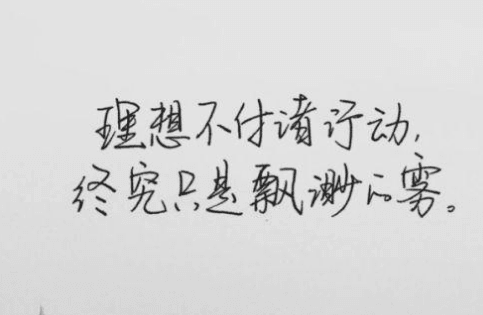 理想不付诸行动,
终究只是飘渺的雾。